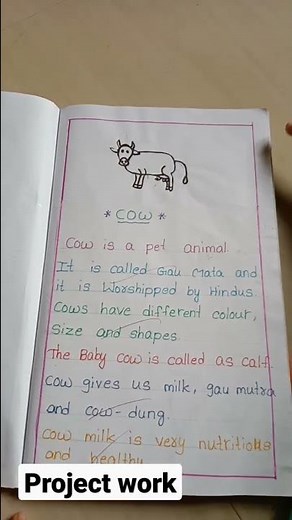 * COW *
Cow is a pet animal
It is called Gau Mata and
it is Worshipped by Hindus.
Cows have different colour,
Size and shapes
The Baby cow is called as calf.
Cow gives us milk, gau mutra
and cow-dung.
Cow milk is very nutritious
and healthy
Project work